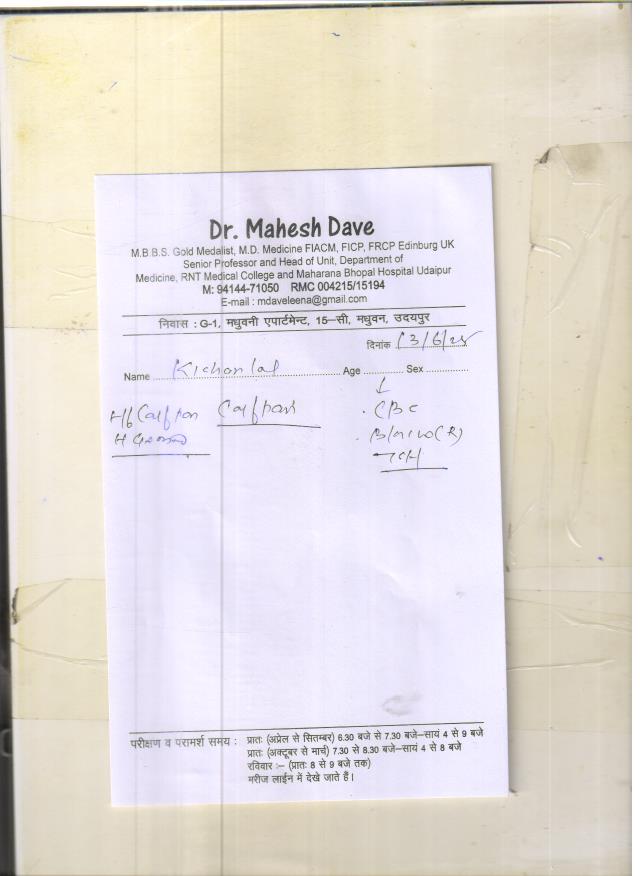 Dr. Mahesh Dave
M.B.B.S. Gold Medalist, M.D. Medicine FIACM, FICP, FRCP Edinburg UK
Senior Professor and Head of Unit, Department of
Medicine, RNT Medical College and Maharana Bhopal Hospital Udaipur
M: 94144-71050 RMC 004215/15194
E-mail : mdaveleena@gmail.com
निवास : G-1, मधुवनी एपार्टमेन्ट, 15–सी, मधुवन, उदयपुर
दिनांक 13/6/25
Name Kichanlal Age Sex
CBC
परीक्षण व परामर्श समय : प्रातः (अप्रेल से सितम्बर) 6.30 बजे से 7.30 बजे–सायं 4 से 9 बजे
प्रातः (अक्टूबर से मार्च) 7.30 से 8.30 बजे–सायं 4 से 8 बजे
रविवार :– (प्रातः 8 से 9 बजे तक)
मरीज लाईन में देखे जाते हैं।